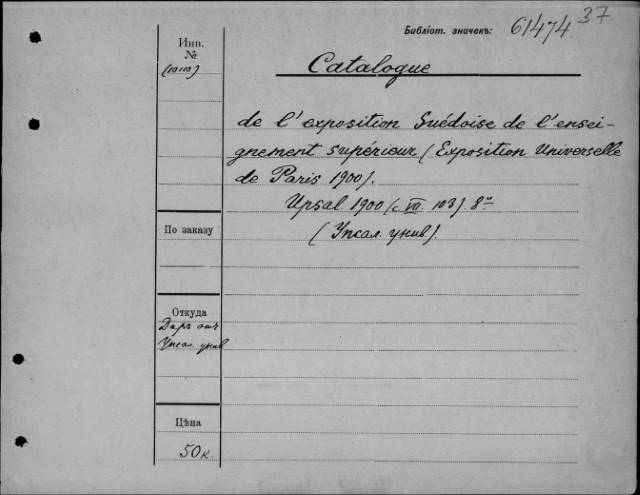 37
Библіот. значекъ: 61474
Инв.
№
(10110)
Catalogue
de l'exposition Suédoise de l'ensei-
gnement supérieur (Exposition Universelle
de Paris 1900).
Upsal 1900 (c. VII 103). 8º
(Упсал. унив).
По заказу
Откуда
Даръ отъ
Упсал. унив
Цѣна
50 к.